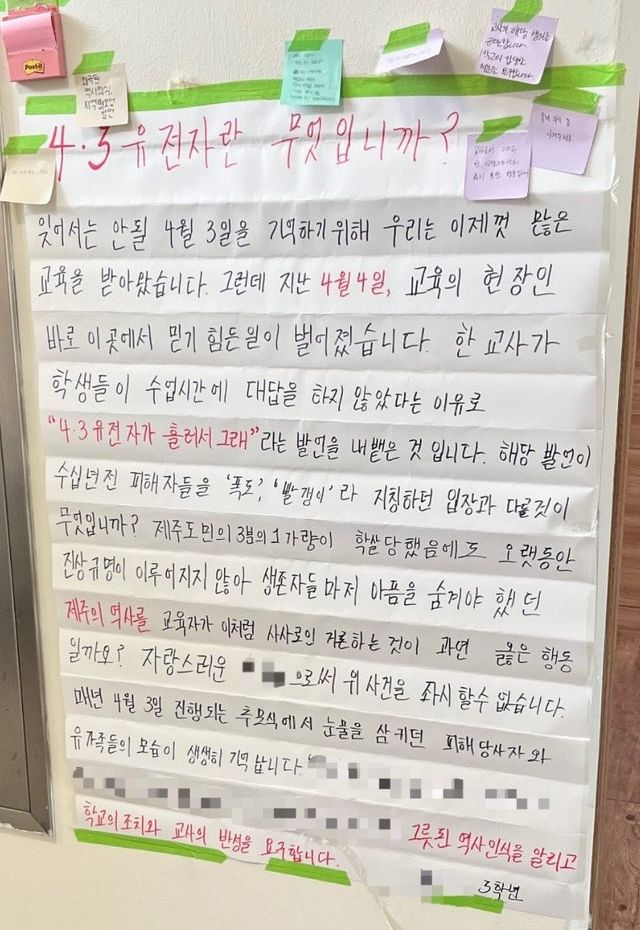 Post-it
왜곡된
역사인식,
지역혐오성
발언
교사가 해당 행위를
4·3 유전자란 무엇입니까?
잊어서는 안될 4월 3일을 기억하기 위해 우리는 이제껏 많은
교육을 받아왔습니다. 그런데 지난 4월 4일, 교육의 현장인
바로 이곳에서 믿기 힘든일이 벌어졌습니다. 한 교사가
학생들이 수업시간에 대답을 하지 않았다는 이유로
"4·3 유전자가 흘러서 그래" 라는 발언을 내뱉은 것 입니다. 해당 발언이
수십년전 피해자들을 '폭도', '빨갱이' 라 지칭하던 입장과 다를것이
무엇입니까? 제주도민의 3분의 1 가량이 학살 당했음에도 오랫동안
진상규명이 이루어지지 않아 생존자들마저 아픔을 숨겨야 했던
제주의 역사를 교육자가 이처럼 사사로이 거론하는 것이 과연 옳은 행동
일까요? 자랑스러운 으로써 위 사건을 좌시 할수 없습니다.
매년 4월 3일 진행되는 추모식에서 눈물을 삼키던 피해당사자와
유가족들의 모습이 생생히 기억 납니다.
그릇된 역사인식을 알리고
학교의 조치와 교사의 반성을 요구합니다.
3학년